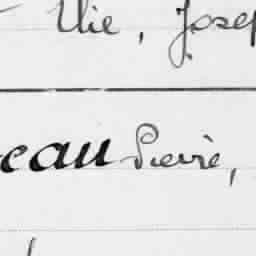 Elie, Josep
eau Pierre,